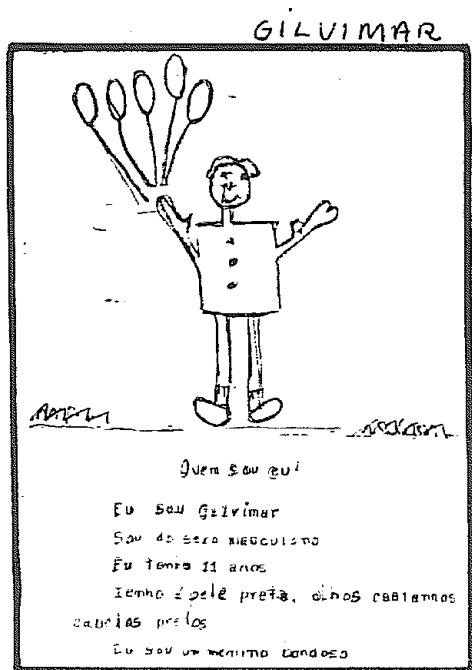 GILVIMAR
Quem sou eu?
Eu sou Gilvimar
Sou do sexo masculino
Eu tenho 11 anos
Tenho a pele preta, olhos castannos
cabelos pretos
Eu sou um menino bondoso